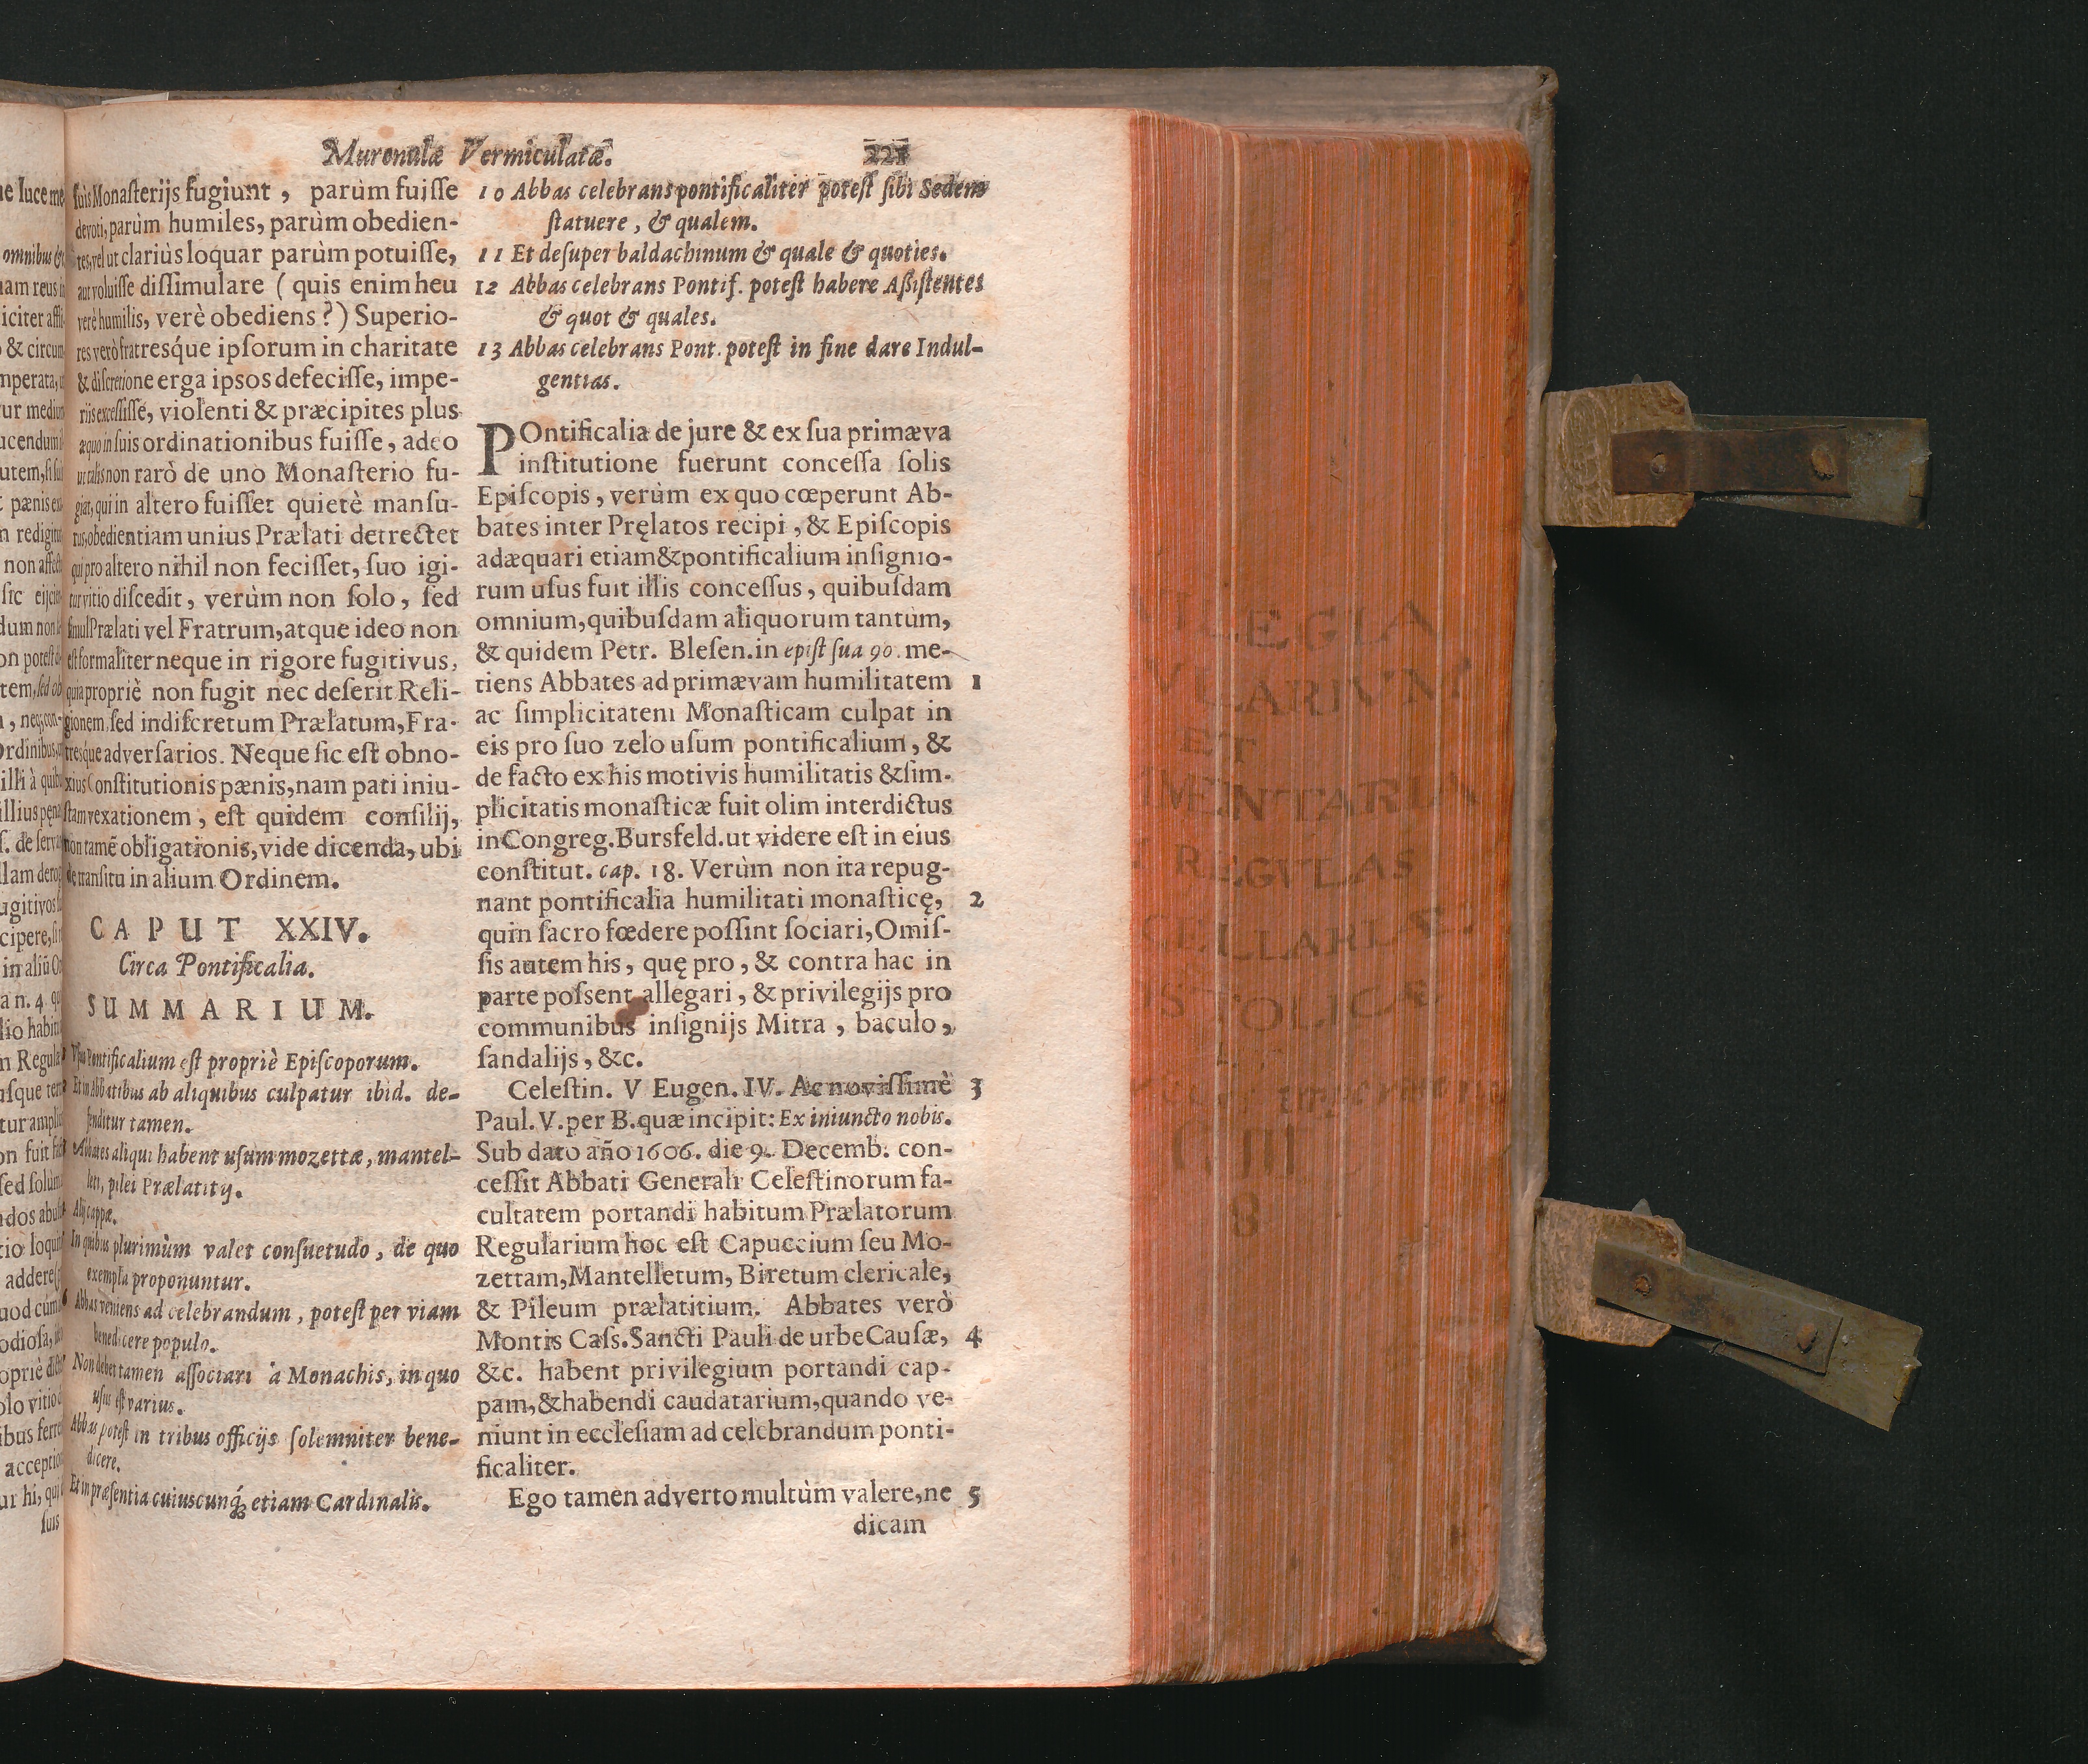 Murenulæ Vermiculatæ.
221
ſuis Monaſterijs fugiunt, parùm fuiſſe
devoti, parùm humiles, parùm obedien-
tes, vel ut clariùs loquar parùm potuiſſe,
aut voluiſſe diſſimulare ( quis enim heu
verè humilis, verè obediens ? ) Superio-
res verò fratresq́ue ipſorum in charitate
& diſcretione erga ipsos defeciſſe, impe-
riis exceſſiſſe, violenti & præcipites plus
æquo in ſuis ordinationibus fuiſſe, adeo
ut talis non rarò de uno Monaſterio fu-
giat, qui in altero fuiſſet quietè manſu-
rus, obedientiam unius Prælati detrectet
qui pro altero nihil non feciſſet, ſuo igi-
tur vitio diſcedit, verùm non ſolo, ſed
ſimul Prælati vel Fratrum, atque ideo non
eſt formaliter neque in rigore fugitivus,
quia propriè non fugit nec deſerit Reli-
gionem, ſed indiſcretum Prælatum, Fra-
tresque adverſarios. Neque ſic eſt obno-
xius Conſtitutionis pænis, nam pati iniu-
ſtam vexationem, eſt quidem conſilij,
non tamẽ obligationis, vide dicenda, ubi
de tranſitu in alium Ordinem.
CAPUT XXIV.
Circa Pontificalia.
SUMMARIUM.
Uſus Pontificalium eſt propriè Epiſcoporum.
Et in Abbatibus ab aliquibus culpatur ibid. de-
fenditur tamen.
Abbates aliqui habent uſum mozettæ, mantel-
leti, pilei Prælatitij.
Alij cappæ.
In quibus plurimùm valet conſuetudo, de quo
exempla proponuntur.
Abbas veniens ad celebrandum, poteſt per viam
benedicere populo.
Non debet tamen aſſociari à Monachis, in quo
uſus eſt varius.
Abbas poteſt in tribus officijs ſolemniter bene-
dicere.
Et in præſentia cuiuscunq́; etiam Cardinalis.
10 Abbas celebrans pontificaliter poteſt ſibi Sedem
ſtatuere, & qualem.
11 Et deſuper baldachinum & quale & quoties.
12 Abbas celebrans Pontif. poteſt habere Aſſiſtentes
& quot & quales.
13 Abbas celebrans Pont. poteſt in fine dare Indul-
gentias.
POntificalia de jure & ex ſua primæva
inſtitutione fuerunt conceſſa ſolis
Epiſcopis, verùm ex quo cœperunt Ab-
bates inter Pręlatos recipi, & Epiſcopis
adæquari etiam & pontificalium inſignio-
rum uſus fuit illis conceſſus, quibuſdam
omnium, quibuſdam aliquorum tantùm,
& quidem Petr. Bleſen. in epiſt ſua 90. me-
tiens Abbates ad primævam humilitatem 1
ac ſimplicitatem Monaſticam culpat in
eis pro ſuo zelo uſum pontificalium, &
de facto ex his motivis humilitatis & ſim-
plicitatis monaſticæ fuit olim interdictus
in Congreg. Bursfeld. ut videre eſt in eius
conſtitut. cap. 18. Verùm non ita repug-
nant pontificalia humilitati monaſticę, 2
quin ſacro fœdere poſſint ſociari, Omiſ-
ſis autem his, quę pro, & contra hac in
parte poſsent allegari, & privilegijs pro
communibus inſignijs Mitra, baculo,
ſandalijs, &c.
Celeſtin. V Eugen. IV. Ac noviſſimè 3
Paul. V. per B. quæ incipit: Ex iniuncto nobis.
Sub dato año 1606. die 9. Decemb. con-
ceſſit Abbati Generali Celeſtinorum fa-
cultatem portandi habitum Prælatorum
Regularium hoc eſt Capuccium ſeu Mo-
zettam, Mantelletum, Biretum clericale,
& Pileum prælatitium. Abbates verò
Montis Caſs. Sancti Pauli de urbe Cauſæ, 4
&c. habent privilegium portandi cap-
pam, & habendi caudatarium, quando ve-
niunt in eccleſiam ad celebrandum ponti-
ficaliter.
Ego tamen adverto multùm valere, ne 5
dicam